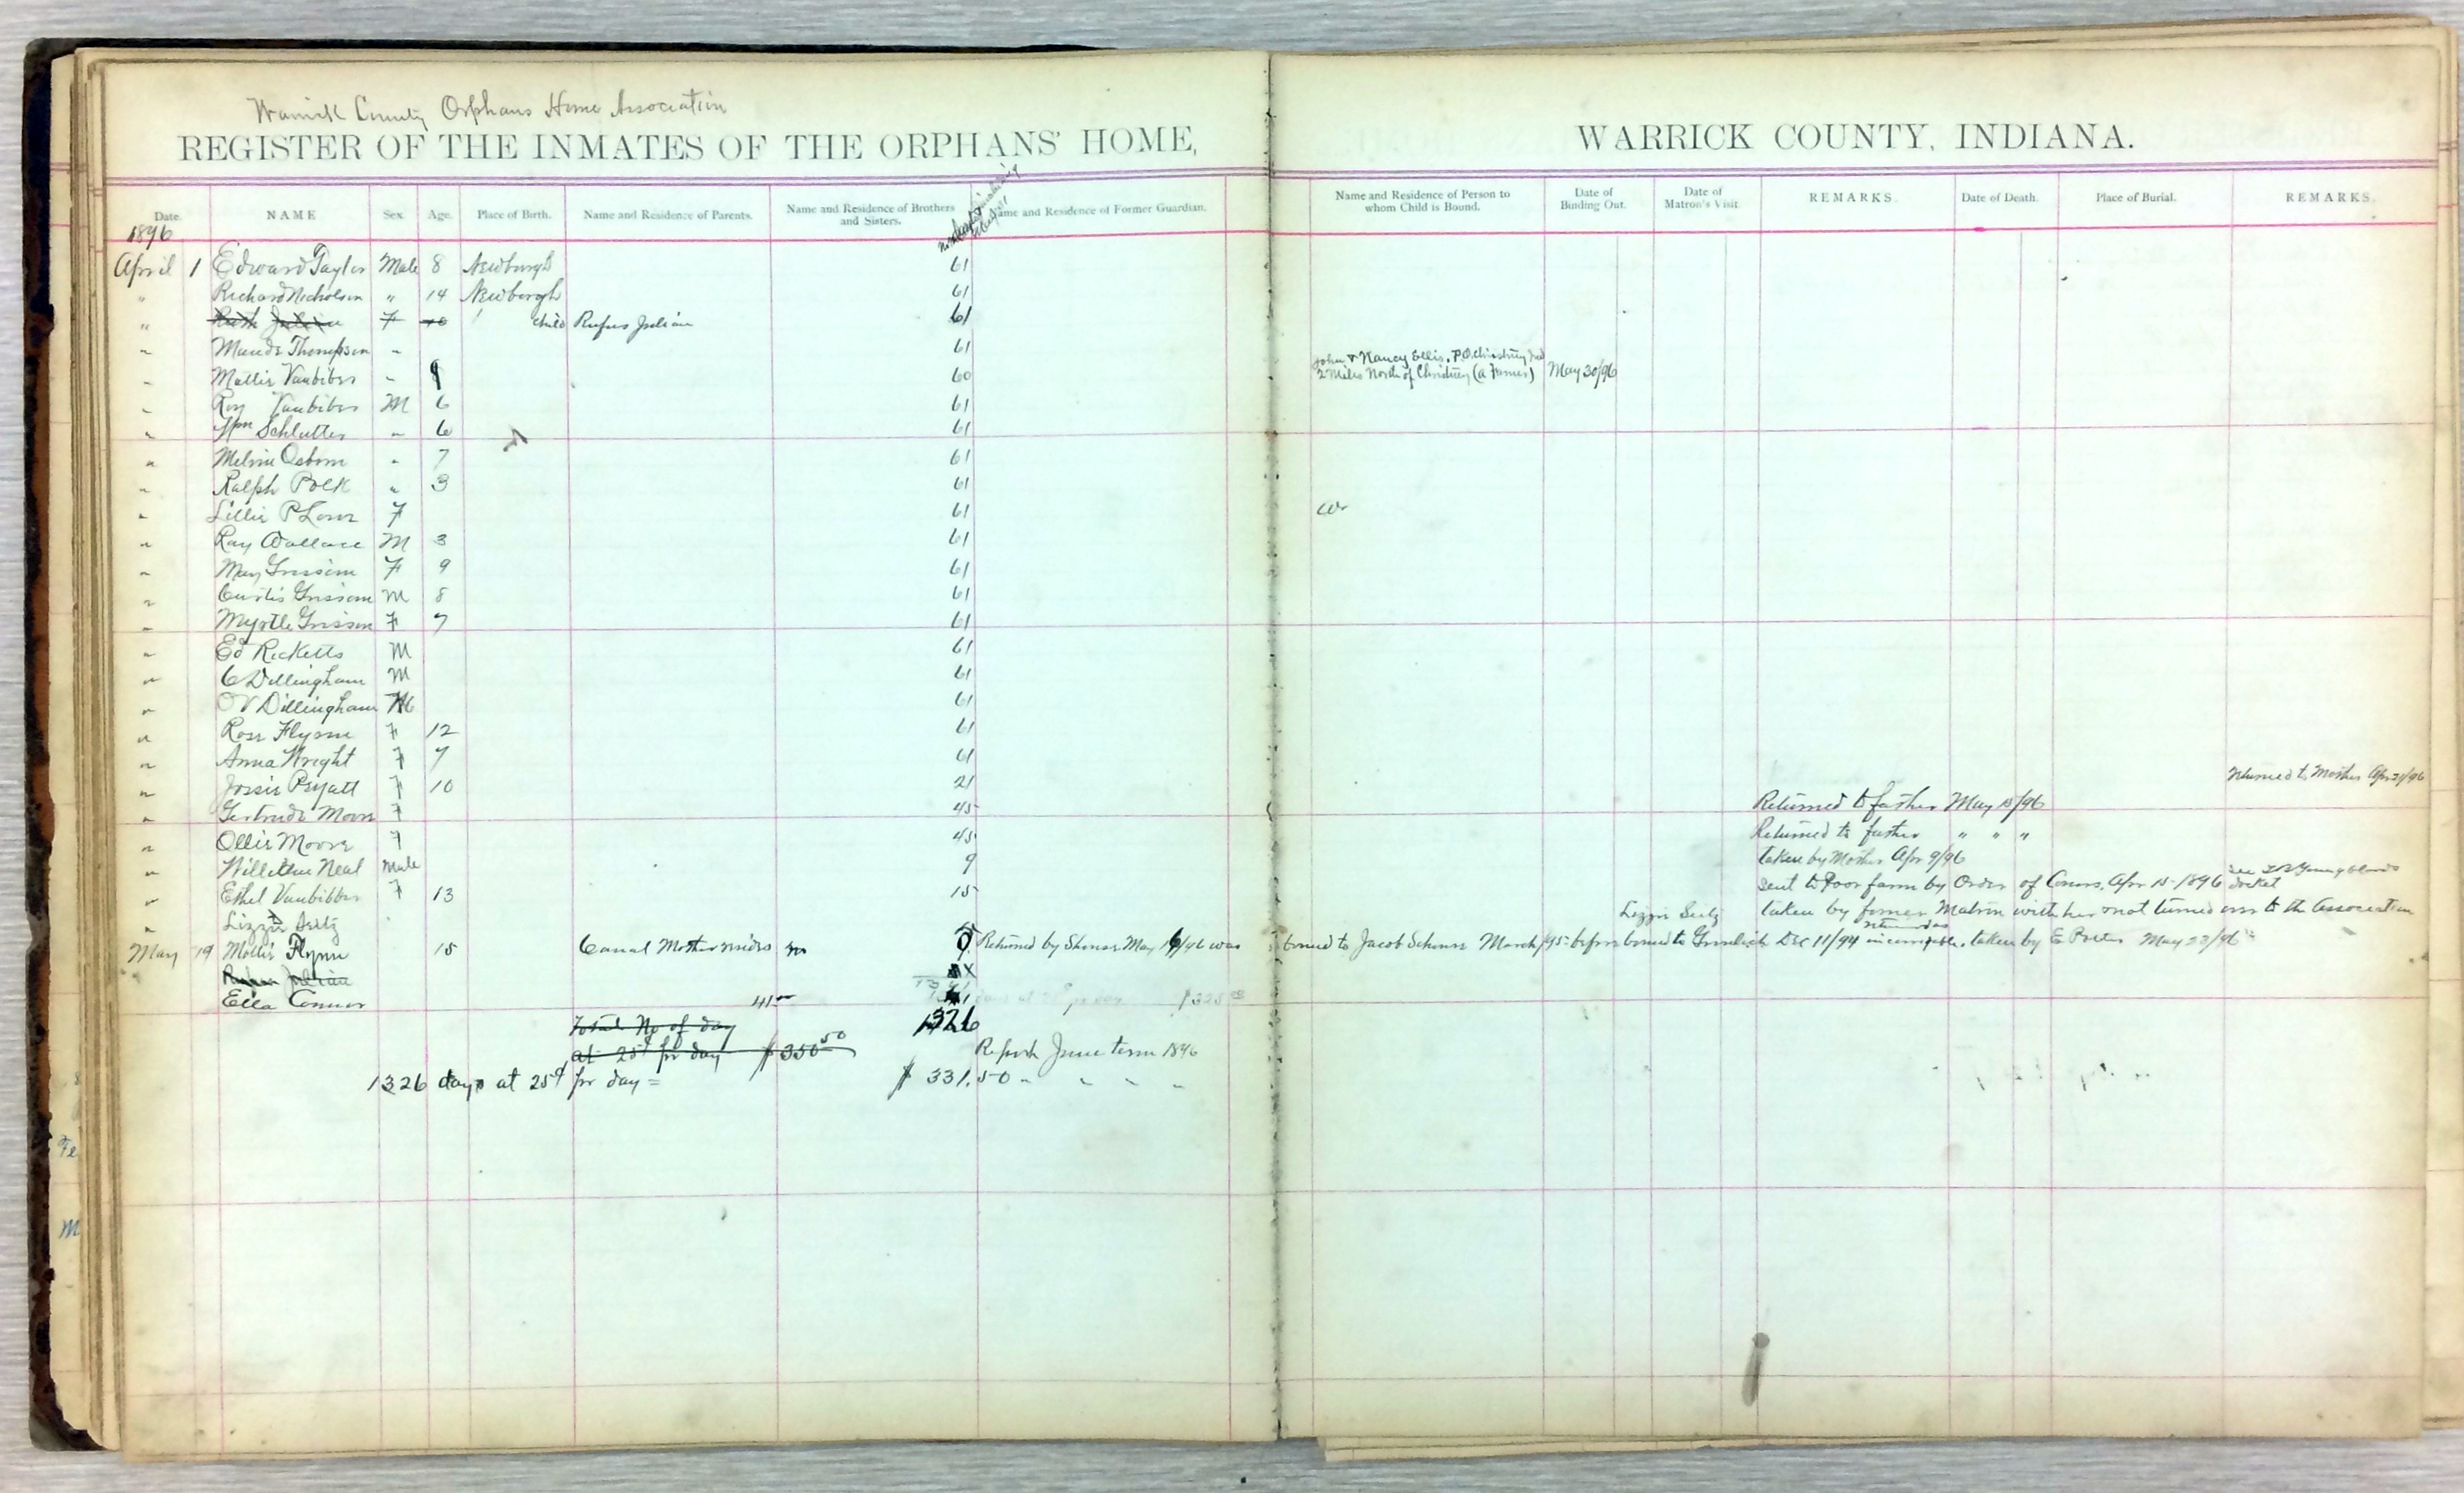 Warrick County Orphans Home Association
REGISTER OF THE INMATES OF THE ORPHANS' HOME, WARRICK COUNTY, INDIANA.
Date. NAME Sex Age. Place of Birth. Name and Residence of Parents. Name and Residence of Brothers and Sisters. Name and Residence of Former Guardian. Name and Residence of Person to whom Child is Bound. Date of Binding Out. Date of Matron's Visit. REMARKS. Date of Death. Place of Burial. REMARKS.
1896
April 1 Edward Taylor Male 8 Newburgh 61
" Richard Nicholson " 14 Newburgh 61
" Ruth Julian F 10 child Rufus Julian 61
" Maude Thompson " 61
" Mattie Vanbiber " 60 John & Nancy Ellis. P.O. Chrisney Ind
2 Miles North of Chrisney (a Farmer) May 30/96
" Roy Vanbiber M 6 61
" Wm Schlutter " 6 61
" Melvin Osborn " 7 61
" Ralph Polk " 3 61
" Lillie P Lowe F 61
" Ray Wallace M 3 61
" May Grissom F 9 61
" Curtis Grissom M 8 61
" Myrtle Grissom F 7 61
" Ed Ricketts M 61
" C Dillingham M 61
" O V Dillingham M 61
" Rose Flynn F 12 61
" Anna Wright F 7 61
" Josie Pryatt F 10 21 returned to Mother Apr 21/96
" Gertrude Moore F 45 Returned to father May 15/96
" Ollie Moore F 45 Returned to father " " "
" Willie Neal Male 9 taken by Mother Apr 9/96
" Ethel Vanbibber F 13 15 sent to Poor farm by Order of Coms. Apr 15-1896 see Youngbloods docket
" Lizzie Seitz Lizzie Seitz taken by former Matron with her & not turned over to the Association
May 19 Mollie Flynn 15 Canal Mother resides 9 Returned by Shener May 19/96 was bound to Jacob Schener March/95 before bound to Dec 11/94 returned as taken by E Porter May 23/96
Rufus Julian
Ella Connor
Total No of day 1326
at 25¢ pr day $350.50 Report June term 1896
1326 days at 25¢ pr day = $331.50 " " " "